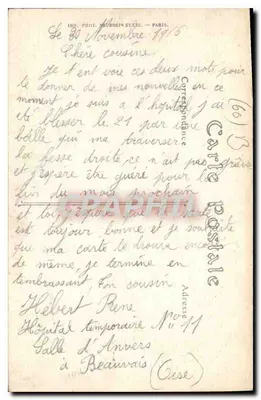 PHOT. NEURDEIN ET CIE. — PARIS.
Le 30 Novembre 1915
Chère cousine
Je t'envoie ces deux mots pour
te donner de mes nouvelles en ce
moment je suis a l'hopital j'ai
été blesser le 21 par une
balle qui ma traverser
la fesse droite ce n'ait pas grave
et j'espère être guérie pour la
fin du mois prochain
et toi j'espère que ta santé
est toujour bonne et je souhaite
que ma carte te trouve encore
de même, je termine en
t'embrassant. Ton cousin
Hébert René
Hôpital temporaire No 11
Salle d'Anvers
à Beauvais (Oise)
Carte Postale
Correspondance
Adresse
(60) B
CPARAMA